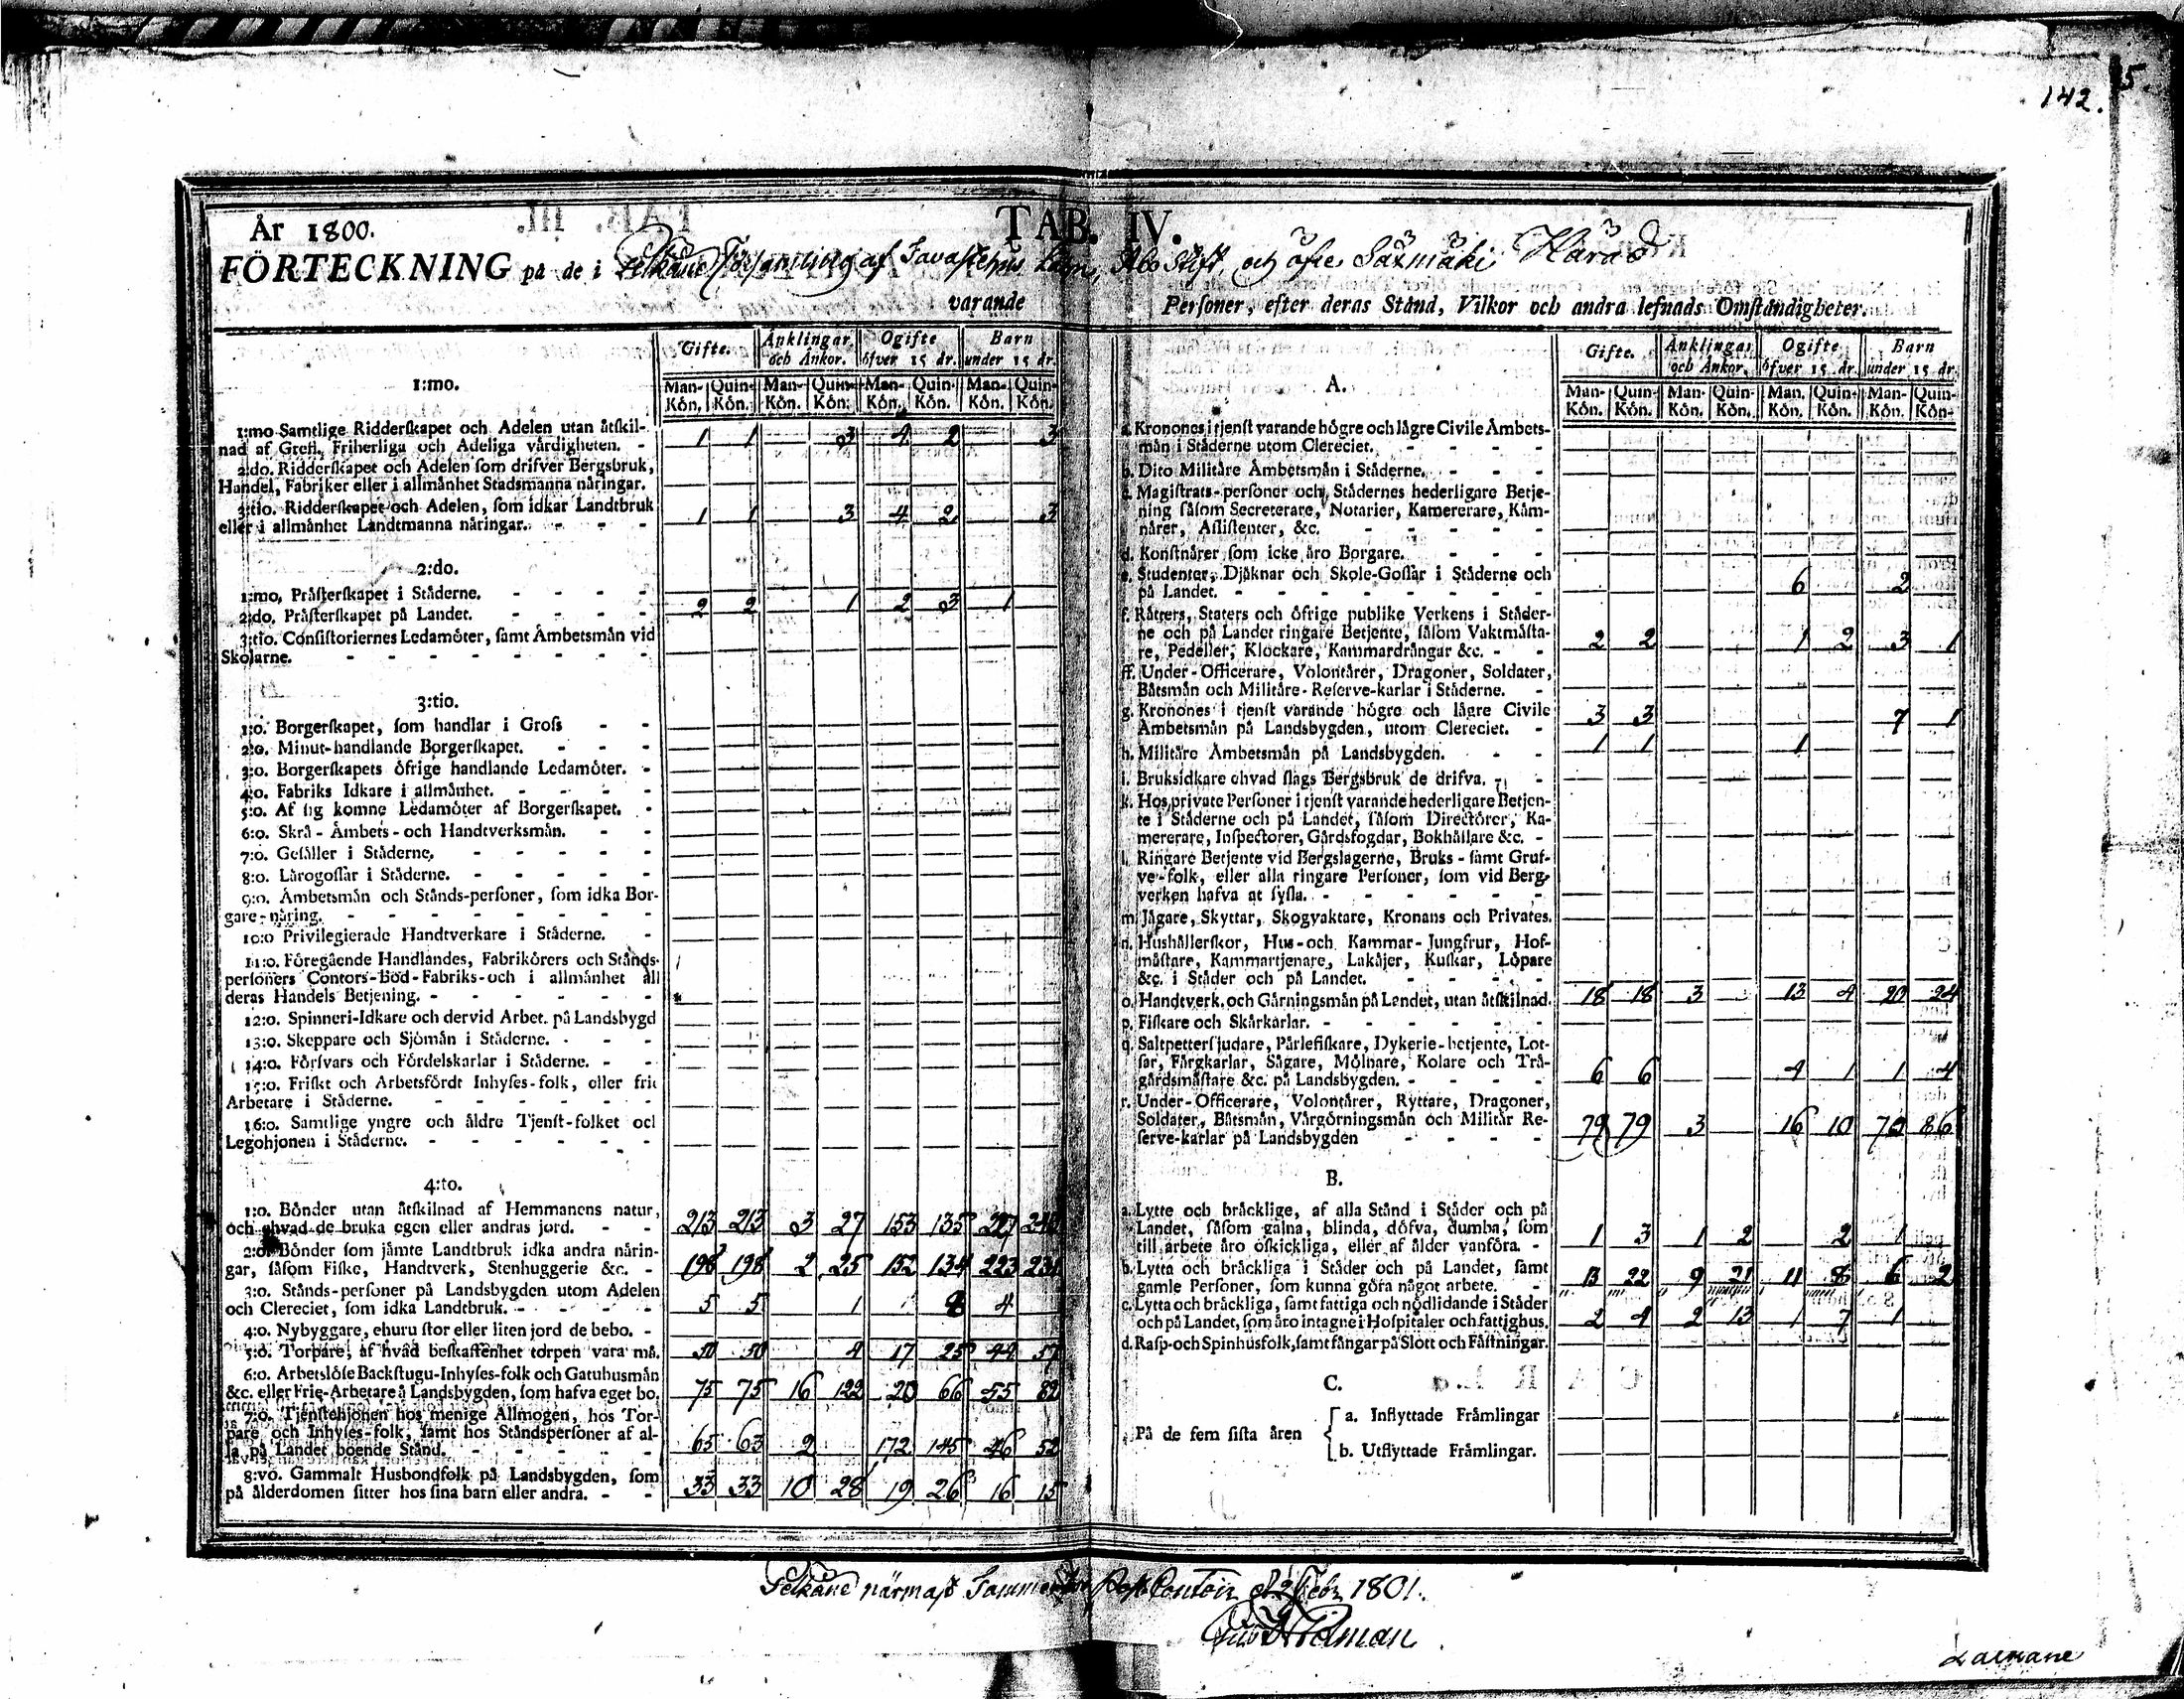 142.
5.
År 1800.
TAB. IV.
FÖRTECKNING på de i Pelkäne Församling af Tavastehus Län, Åbo Stift, och öfre Säxmäki Härad
varande Personer, efter deras Stånd, Vilkor och andra lefnads Omständigheter.
Gifte. Änklingar och Änkor. Ogifte öfver 15 år. Barn under 15 år.
Man-Kön. Quin-Kön. Man-Kön. Quin-Kön. Man-Kön. Quin-Kön. Man-Kön. Quin-Kön.
1:mo.
1:mo Samtlige Ridderskapet och Adelen utan åtskil-
nad af Grefl., Friherliga och Adeliga värdigheten. - 1 1 3 4 2 3
2:do. Ridderskapet och Adelen som drifver Bergsbruk,
Handel, Fabriker eller i allmånhet Stadsmanna näringar.
3:tio. Ridderskapet och Adelen, som idkar Landtbruk
eller i allmånhet Landtmanna näringar. - - - 1 1 3 4 2 3
2:do.
1:mo, Pråsterskapet i Ståderne. - - - -
2:do, Pråsterskapet på Landet. - - - - 2 2 1 2 3 1
3:tio. Consistoriernes Ledamöter, samt Åmbetsmån vid
Skolarne. - - - - - - -
3:tio.
1:o. Borgerskapet, som handlar i Gross - -
2:o. Minut-handlande Borgerskapet. - - -
3:o. Borgerskapets öfrige handlande Ledamöter. -
4:o. Fabriks Idkare i allmånhet. - - - -
5:o. Af sig komne Ledamöter af Borgerskapet. -
6:o. Skrå-Åmbets-och Handtverksmån. - -
7:o. Gesåller i Ståderne. - - - - -
8:o. Lårogossar i Ståderne. - - - - -
9:o. Åmbetsmån och Stånds-personer, som idka Bor-
gare-näring. - - - - - - -
10:o Privilegierade Handtverkare i Ståderne. -
11:o. Föregående Handlandes, Fabrikörers och Stånds-
personers Contors-Bod-Fabriks-och i allmånhet all
deras Handels Betjening. - - - - - -
12:o. Spinneri-Idkare och dervid Arbet. på Landsbygd
13:o. Skeppare och Sjömån i Ståderne. - - -
14:o. Försvars och Fördelskarlar i Ståderne. - -
15:o. Friskt och Arbetsfördt Inhyses-folk, eller frie
Arbetare i Ståderne. - - - - - -
16:o. Samtlige yngre och åldre Tjenst-folket och
Legohjonen i Ståderne. - - - - - -
4:to.
1:o. Bönder utan åtskilnad af Hemmanens natur,
och ehvad de bruka egen eller andras jord. - - 213 213 3 27 153 135
2:o. Bönder som jämte Landtbruk idka andra närin-
gar, såsom Fiske, Handtverk, Stenhuggerie &c. - 198 198 2 25 152 134 223
3:o. Stånds-personer på Landsbygden utom Adelen
och Clereciet, som idka Landtbruk. - - - - 5 5 1 4
4:o. Nybyggare, ehuru stor eller liten jord de bebo. -
5:o. Torpare, af hvad beskaffenhet torpen vara må. 50 50 4 17 25 44 57
6:o. Arbetslöse Backstugu-Inhyses-folk och Gatuhusmån
&c. eller Frie-Arbetare å Landsbygden, som hafva eget bo. 75 75 16 122 20 66 55 82
7:o. Tjenstehjonen hos menige Allmogen, hos Tor-
pare och Inhyses-folk, samt hos Ståndspersoner af al-
la på Landet boende Stånd. - - - - 65 63 2 172 145 46 52
8:vo. Gammalt Husbondfolk på Landsbygden, som
på ålderdomen sitter hos sina barn eller andra. - - 33 33 10 28 19 26 16 15
Gifte. Änklingar och Änkor. Ogifte öfver 15 år. Barn under 15 år.
Man-Kön. Quin-Kön. Man-Kön. Quin-Kön. Man. Kön. Quin-Kön. Man-Kön. Quin-Kön-
A.
a. Kronones i tjenst varande högre och lågre Civile Åmbets-
mån i Ståderne utom Clereciet. - - - -
b. Dito Militåre Åmbetsmån i Ståderne. - - -
c. Magistrats-personer och Stådernes hederligare Betje-
ning såsom Secreterare, Notarier, Kamererare, Kåm-
nårer, Assistenter, &c. - - - -
d. Konstnårer som icke åro Borgare. - - -
e. Studenter, Djåknar och Skole-Gossar i Ståderne och
på Landet. - - - - - - - 6 2
f. Råtters, Staters och öfrige publike Verkens i Ståder-
ne och på Landet ringare Betjente, såsom Vaktmåsta-
re, Pedeller, Klockare, Kammardrångar &c. - - 2 2 1 2 3 1
ff. Under-Officerare, Volontårer, Dragoner, Soldater,
Båtsmån och Militåre-Reserve-karlar i Ståderne. -
g. Kronones i tjenst varande högre och lågre Civile
Åmbetsmån på Landsbygden, utom Clereciet. - 3 3 7 1
h. Militåre Åmbetsmån på Landsbygden. - - 1 1 1
i. Bruksidkare ehvad slags Bergsbruk de drifva. - -
k. Hos private Personer i tjenst varande hederligare Betjen-
te i Ståderne och på Landet, såsom Directörer, Ka-
mererare, Inspectorer, Gårdsfogdar, Bokhållare &c. -
l. Ringare Betjente vid Bergslagerne, Bruks-samt Gruf-
ve-folk, eller alla ringare Personer, som vid Berg-
verken hafva at syssla. - - - - -
m. Jågare, Skyttar, Skogvaktare, Kronans och Privates.
n. Hushållerskor, Hus-och Kammar-Jungfrur, Hof-
måstare, Kammartjenare, Lakåjer, Kuskar, Löpare
&c. i Ståder och på Landet. - - - -
o. Handtverk. och Gårningsmån på Landet, utan åtskilnad. 18 18 3 13 4 20 24
p. Fiskare och Skårkarlar. - - - - - -
q. Saltpettersjudare, Pårlefiskare, Dykerie-betjente, Lot-
sar, Fårgkarlar, Sågare, Mölnare, Kolare och Trå-
gårdsmåstare &c. på Landsbygden. - - - - 6 6 4 1 1 4
r. Under-Officerare, Volontårer, Ryttare, Dragoner,
Soldater, Båtsmån, Vårgörningsmån och Militår Re-
serve-karlar på Landsbygden - - - - 79 79 3 16 10 70 86
B.
a. Lytte och bråcklige, af alla Stånd i Ståder och på
Landet, såsom galna, blinda, döfva, dumba, som
till arbete åro oskickliga, eller af ålder vanföra. - 1 3 1 2 2 1
b. Lytta och bråckliga i Ståder och på Landet, samt
gamle Personer, som kunna göra något arbete. - 13 22 9 21 11 8 6 2
c. Lytta och bråckliga, samt fattiga och nödlidande i Ståder
och på Landet, som åro intagne i Hospitaler och fattighus. 2 4 2 13 1 7 1
d. Rasp-och Spinhusfolk, samt fångar på Slott och Fåstningar.
C.
På de fem sista åren
a. Inflyttade Fråmlingar
b. Utflyttade Fråmlingar.
Pelkäne närmast Tammerfors Post Contoir d. 2 Febr. 1801.